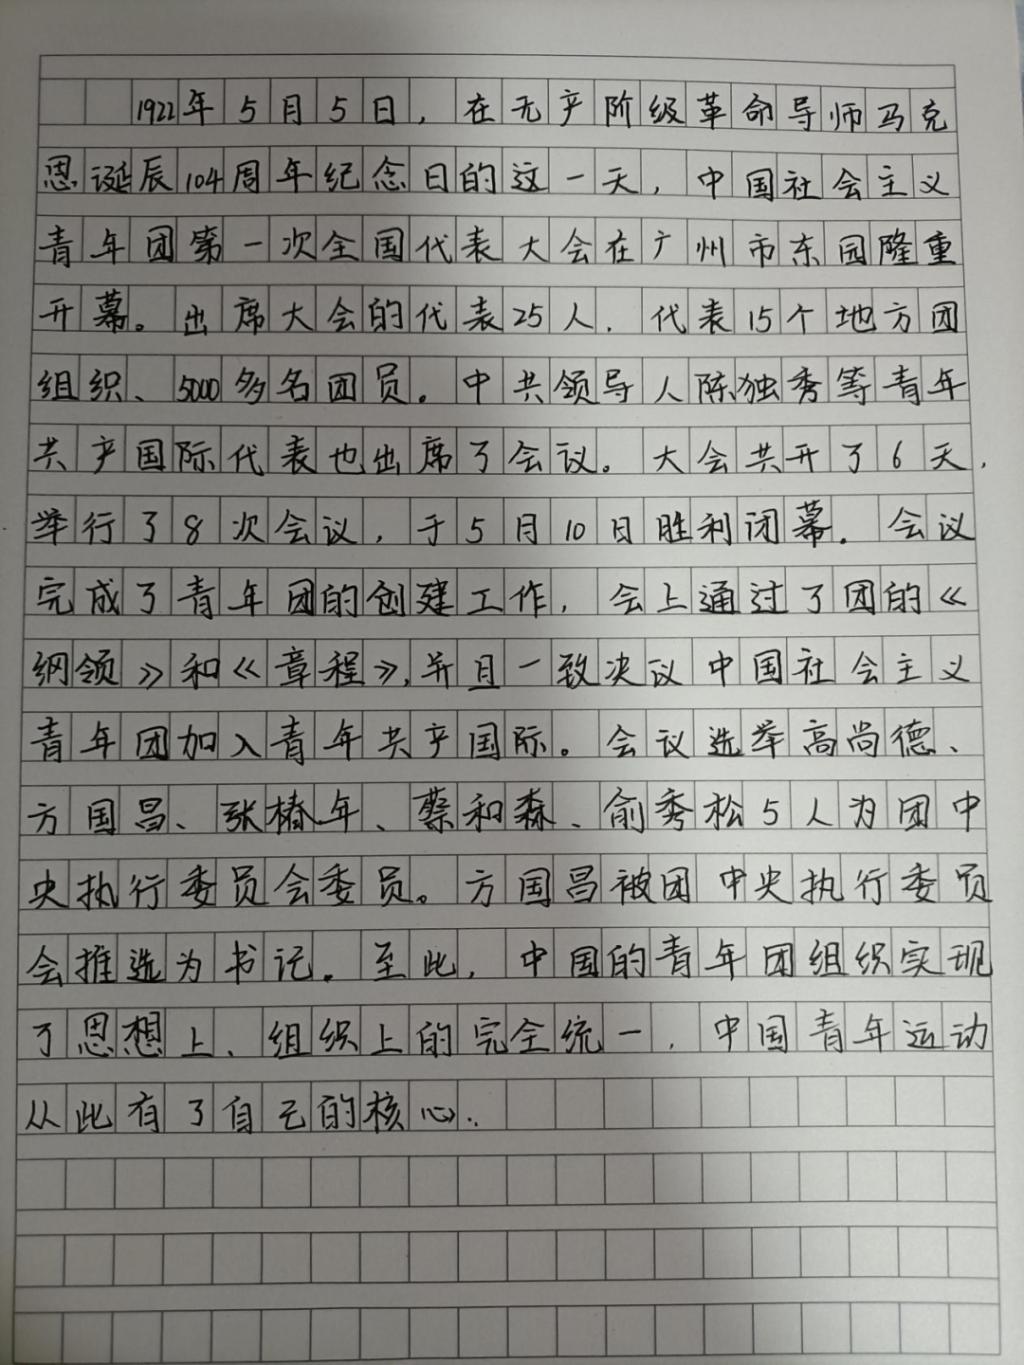 1922年5月5日，在无产阶级革命导师马克
恩诞辰104周年纪念日的这一天，中国社会主义
青年团第一次全国代表大会在广州市东园隆重
开幕。出席大会的代表25人，代表15个地方团
组织、5000多名团员。中共领导人陈独秀等青年
共产国际代表也出席了会议。大会共开了6天，
举行了8次会议，于5月10日胜利闭幕。会议
完成了青年团的创建工作，会上通过了团的《
纲领》和《章程》，并且一致决议中国社会主义
青年团加入青年共产国际。会议选举高尚德、
方国昌、张椿年、蔡和森、俞秀松5人为团中
央执行委员会委员。方国昌被团中央执行委员
会推选为书记。至此，中国的青年团组织实现
了思想上、组织上的完全统一，中国青年运动
从此有了自己的核心。